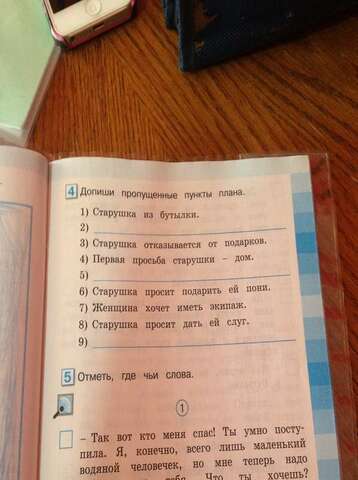 4 Допиши пропущенные пункты плана.
1) Старушка из бутылки.
2)
3) Старушка отказывается от подарков.
4) Первая просьба старушки – дом.
5)
6) Старушка просит подарить ей пони.
7) Женщина хочет иметь экипаж.
8) Старушка просит дать ей слуг.
9)
5 Отметь, где чьи слова.
1
– Так вот кто меня спас! Ты умно посту-
пила. Я, конечно, всего лишь маленький
водяной человечек, но мне теперь надо
тебя. Что ты хочешь?